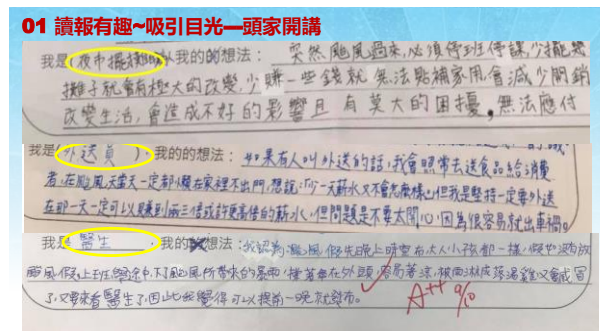 01 讀報有趣~吸引目光—頭家開講
我是(夜市擺攤)以我的的想法: 突然颱風過來,必須停班停課,少擺幾
攤子就會有極大的改變,少賺一些錢就無法點補家用會減少開銷
改變生活,會造成不好的影響且有莫大的困擾。無法應付
我是(外送員),我的的想法:如果有人叫外送的話,我會照常去送食品給消費
者,在颱風天當天一定都懶在家裡不出門,想說:少一天薪水又不會怎麼樣,但我是堅持一定要外送
在那一天一定可以賺到兩三倍或許更高倍的薪水,但問題是不要太開心,因為很容易就出車禍。
我是 醫生 ,我的想法:我認為颱風假先晚上時宣布大人小孩都一樣,假如沒有放
颱風假,上班 途中 颱風所帶來的暴雨, 在外頭,容易著涼,被雨淋成落湯雞又會感冒
了,又要來看醫生了,因此我覺得可以提前一晚就發布。
A++ 9/10